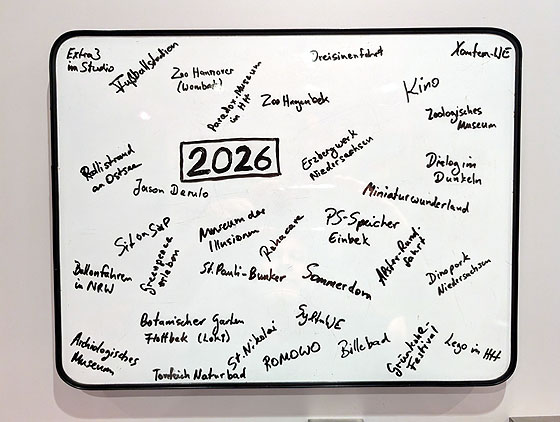 Extra3
im Studio
Fußballstadion
Zoo Hannover
(Wombat)
Paradox-Museum
in HH
Zoo Hagenbek
Dreisinenfahrt
Kino
Xanten-WE
Zoologisches
Museum
Rollistrand
an Ostsee
2026
Jason Derulo
Erzbergwerk
Niedersachsen
Dialog im
Dunkeln
Miniaturwunderland
Sit on SUP
Museum der
Illusionen
Rohacare
PS-Speicher
Einbek
Alster-Rund-
fahrt
Ballonfahren
in NRW
Greenpeace
erleben
St. Pauli-Bunker
Sommerdom
Dinopark
Niedersachsen
Botanischer Garten
Flottbek (Loki)
St. Nikolai
Sylt-WE
Archäologisches
Museum
Tonteich Naturbad
ROMOWO
Billebad
Grünkohl-
Festival
Lego in HH